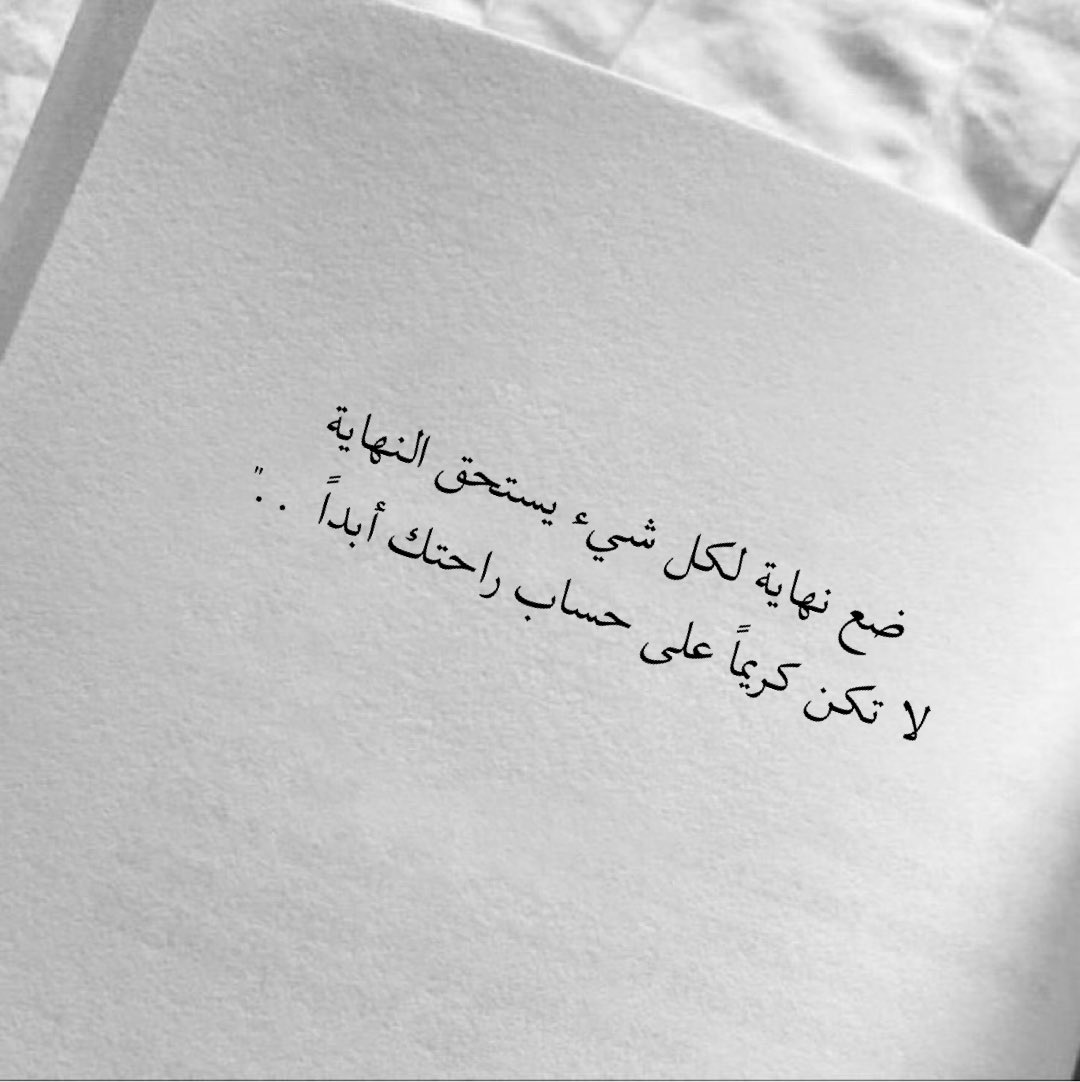 ضع نهاية لكل شيء يستحق النهاية
لا تكن كريماً على حساب راحتك أبداً . ."